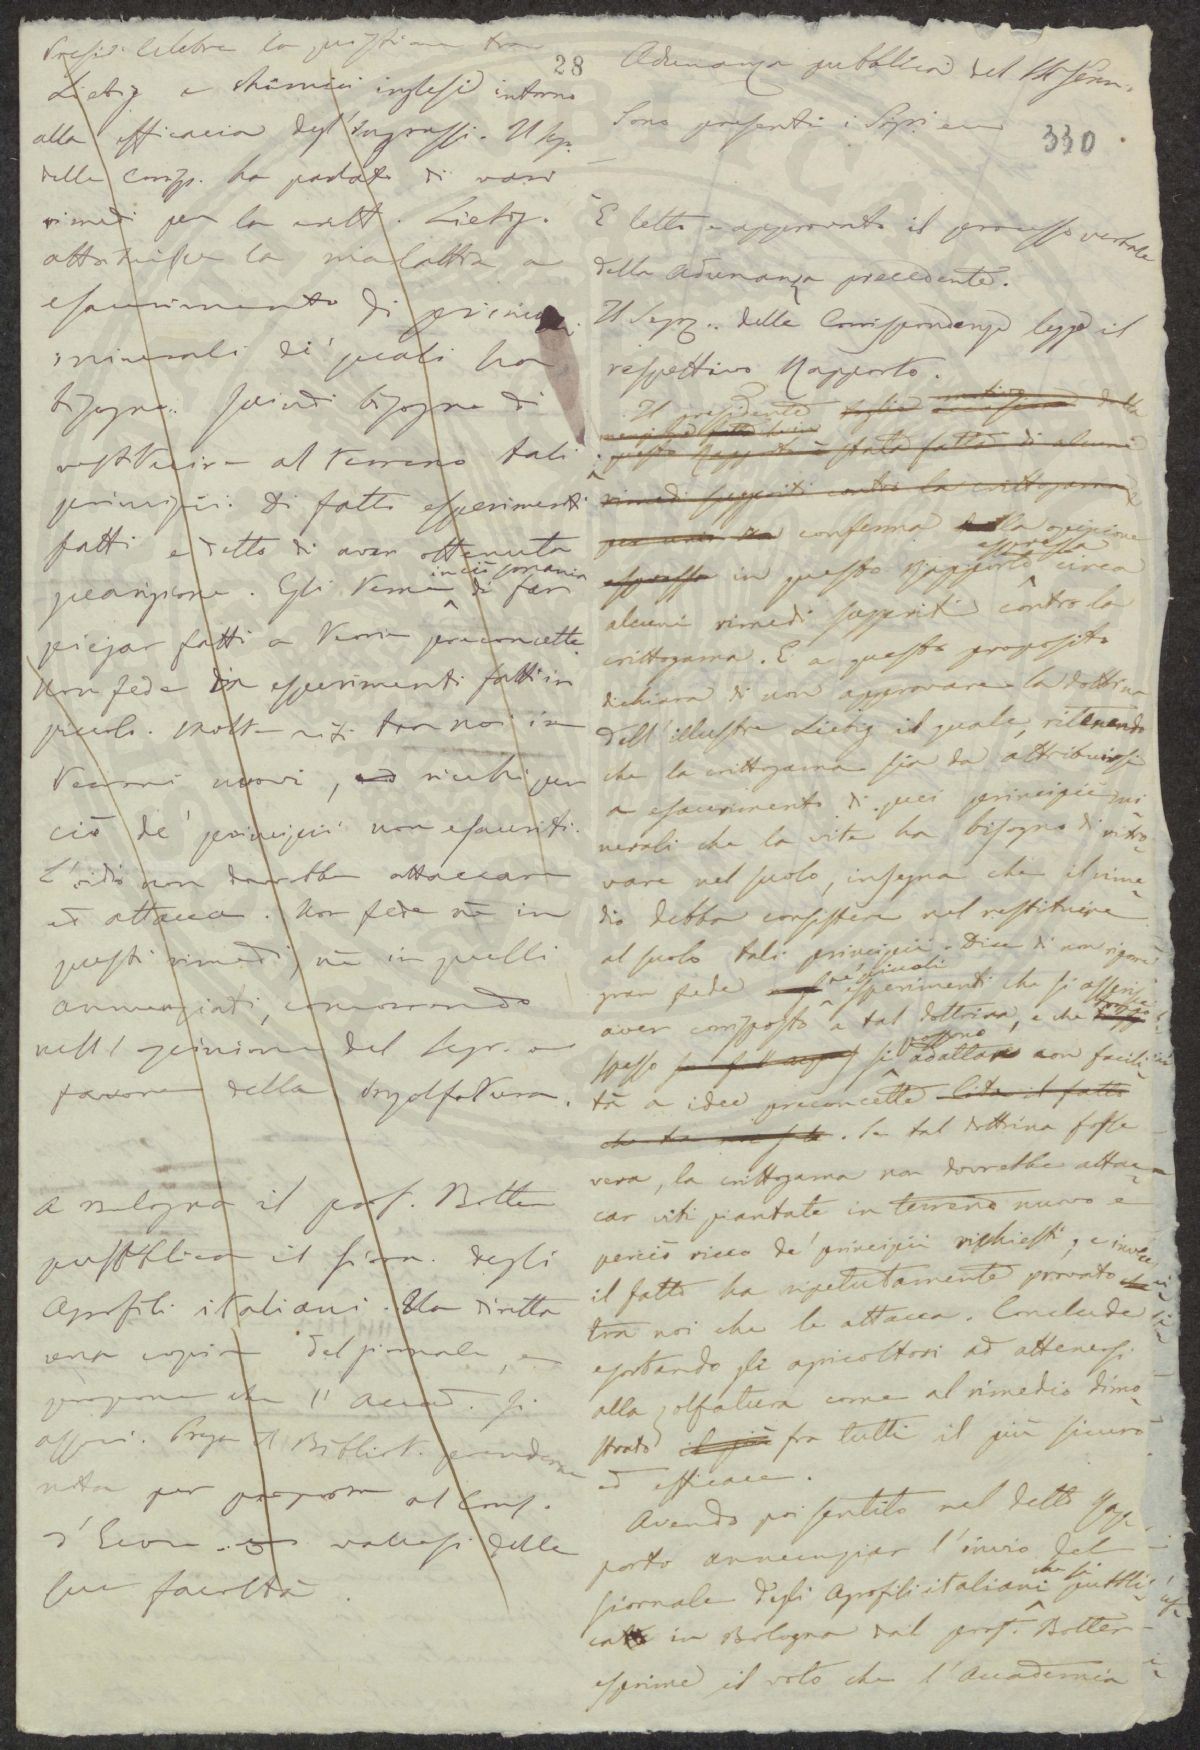 Presid. Celebre la quistione tra
Liebig e chimici inglesi intorno
alla efficacia degl'ingrassi. Il Seg.
delle Corrisp. ha parlato di vari
rimedi per la critt. Liebig.
attribuisce la malattia a
esaurimento di principi
minerali de' quali ha
bisogno. Quindi bisogna di
restituire al terreno tali
principii. Di fatto esperimenti
fatti e detto di aver ottenuta
guarigione. Gli
in ciò smania
di far
piegar fatti a teorie preconcette.
Non fede in esperimenti fatti in
piccolo. Molte viti tra noi in
terreni nuovi, ricchi per
ciò de' principii non esauriti.
L'oidio non dovrebbe attaccare
ed attacca. Non fede nè in
questi rimedi, nè in quelli
annunziati, concorrendo
nell'opinione del Segr. a
favore della insolfatura.
A Bologna il prof. Botter
pubblica il Giorn. degli
Agrofili italiani. Ha diretta
una copia del giornale, e
propone che l'Accad. si
associ. Prega il Bibliot. prendere
nota per proporre al Cons.
d'Econ. o valersi delle
sue facoltà.
28
Adunanza pubblica del 14 Genn.
Sono presenti i Sigri
330
È letto e approvato il processo verbale
della Adunanza precedente.
Il Segr. delle Corrispondenze legge il
respettivo Rapporto.
Il presidente toglie della
questo Rapporto è stata fatta di alcuni
rimedi suggeriti contro la crittogama e
per una conferma la opinione
espressa
espressa in questo Rapporto circa
alcuni rimedi suggeriti contro la
crittogama. E a questo proposito
dichiara di non approvare la dottrina
dell'illustre Liebig il quale, ritenendo
che la crittogama sia da attribuirsi
a esaurimento di quei principii mi
nerali che la vite ha bisogno di ritro
vare nel suolo, insegna che il rime
dio debba consistere nel restituire
al suolo tali principii. Dice di non riporre
gran fede ne' piccoli esperimenti che si asserisce
aver composto a tal dottrina, e che troppo
spesso si possono adattare con facili
tà a idee preconcette
. Se tal dottrina fosse
vera, la crittogama non dovrebbe attac
car viti piantate in terreno nuovo e
perciò ricco de' principii richiesti, e invece
il fatto ha ripetutamente provato
tra noi che le attacca. Conclude
esortando gli agricoltori ad attenersi
alla solfatura come al rimedio dimo
strato il più fra tutti il più sicuro
ed efficace.
Avendo poi sentito nel detto Rap
porto annunziar l'invio del
Giornale degli Agrofili italiani che si pubbli
ca in Bologna dal prof. Botter
esprime il voto che l'Accademia